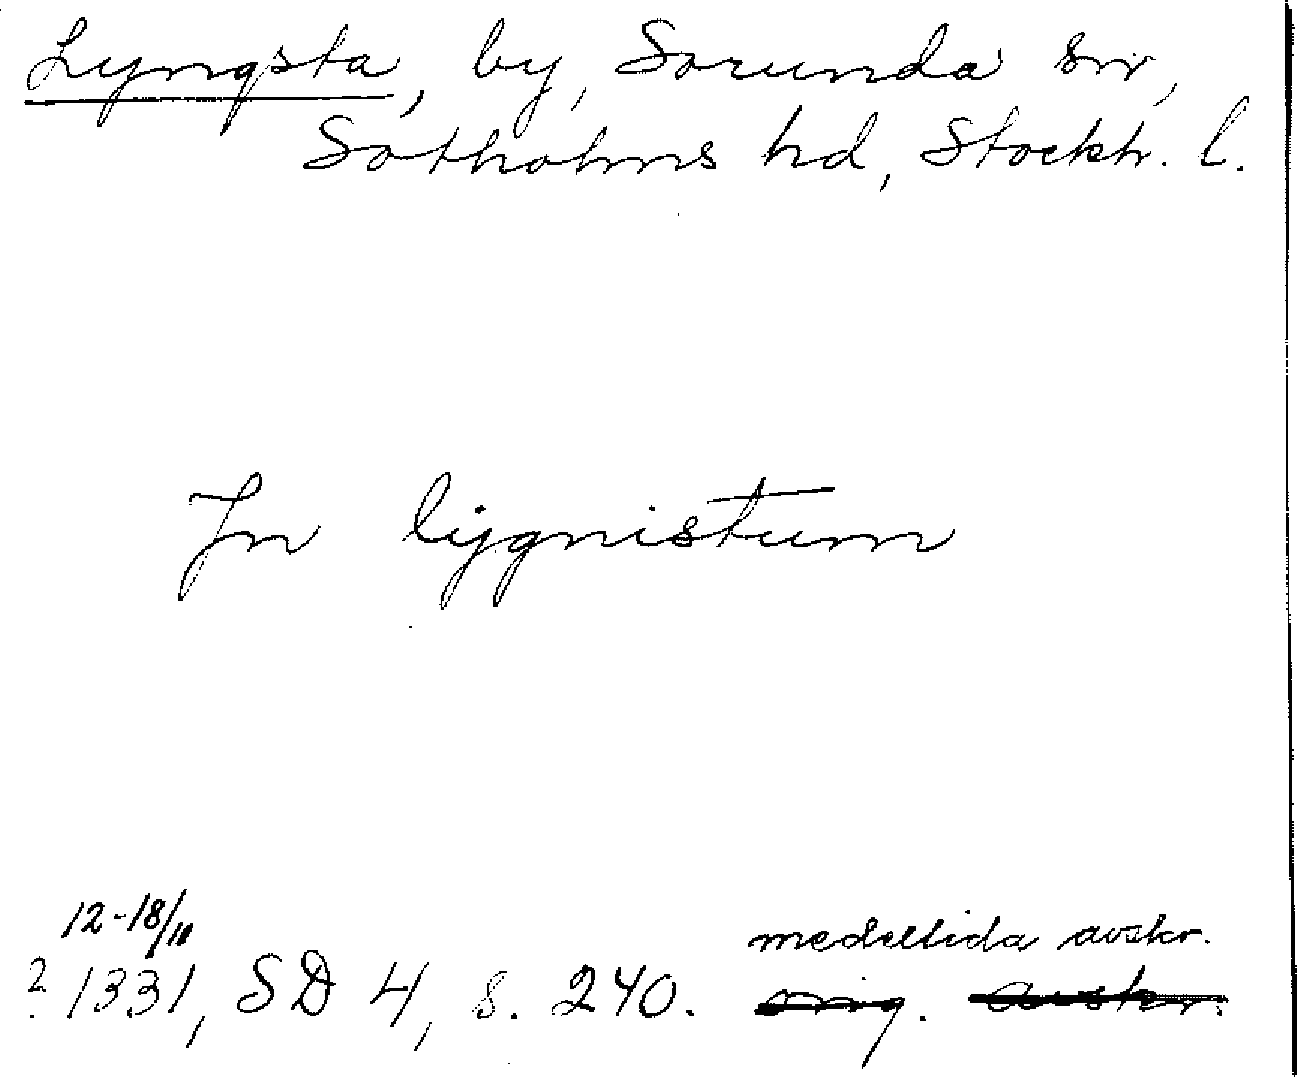 Lyngsta, by, Sorunda sn,
Sotholms hd, Stockh. l.
Jn lygnistum
12-18/10
? 1331, SD 4, s. 240.
medeltida avskr.
orig. avskr.